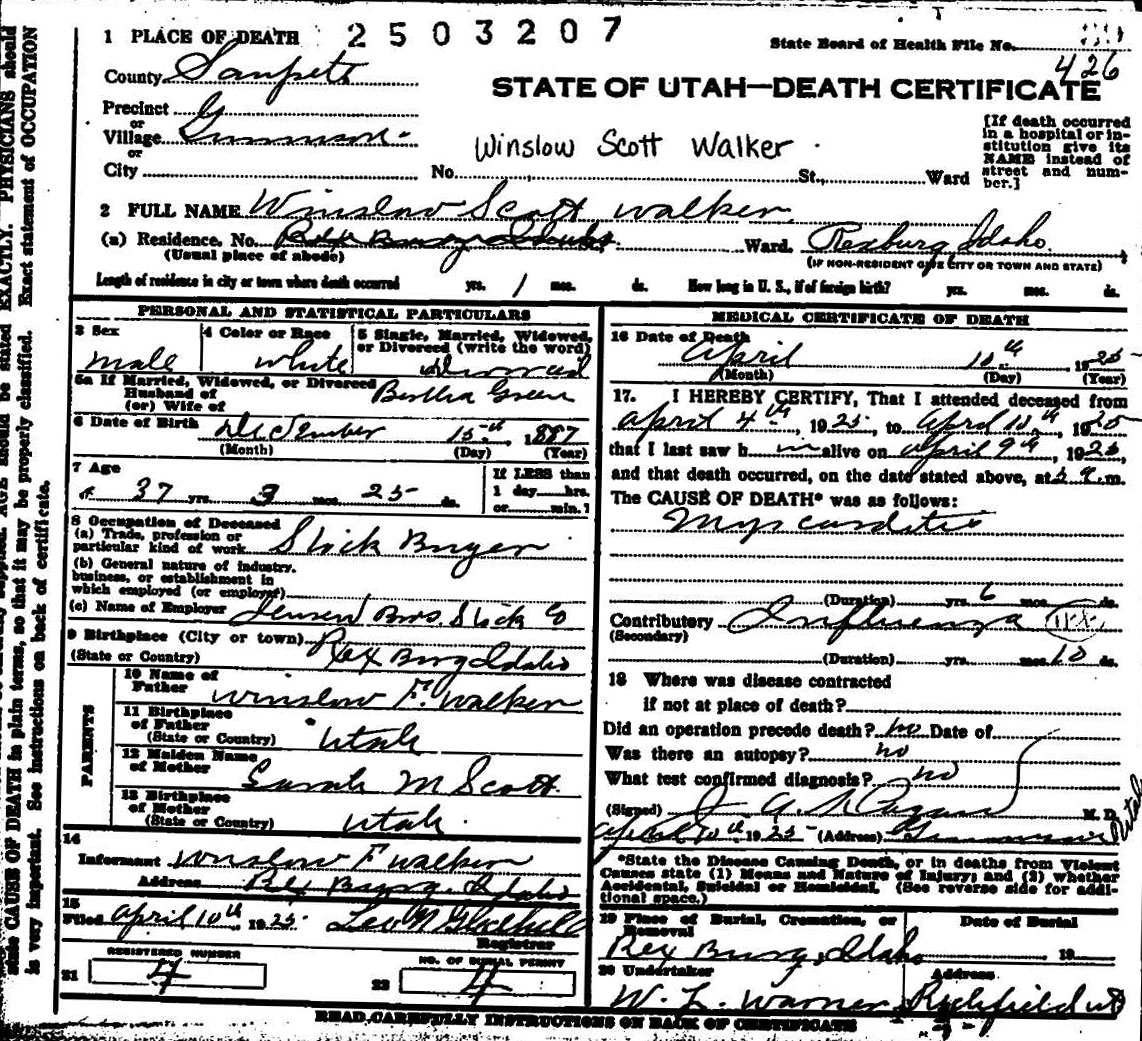 1 PLACE OF DEATH 2503207
State Board of Health File No.
426
County Sanpete
STATE OF UTAH—DEATH CERTIFICATE
Precinct
or
Village Gunnison
or
City
Winslow Scott Walker
No. St., Ward
[If death occurred
in a hospital or in-
stitution give its
NAME instead of
street and num-
ber.]
2 FULL NAME Winslow Scott Walker
(a) Residence. No. Rex Burg Idaho Ward. Rexburg Idaho
(Usual place of abode)
(IF NON-RESIDENT GIVE CITY OR TOWN AND STATE)
Length of residence in city or town where death occurred yrs. 1 mos. ds. How long in U. S., if of foreign birth? yrs. mos. ds.
PERSONAL AND STATISTICAL PARTICULARS
3 Sex
male
4 Color or Race
white
5 Single, Married, Widowed,
or Divorced (write the word)
divorced
5a If Married, Widowed, or Divorced
Husband of
(or) Wife of
Bertha Green
6 Date of Birth December 15th, 1887
(Month) (Day) (Year)
7 Age
37 yrs. 3 mos. 25 ds.
If LESS than
1 day hrs.
or min.?
8 Occupation of Deceased
(a) Trade, profession or
particular kind of work Stock Buyer
(b) General nature of industry.
business, or establishment in
which employed (or employer)
(c) Name of Employer Jensen Bros. Stock Co
9 Birthplace (City or town)
(State or Country) Rex Burg Idaho
PARENTS
10 Name of
Father Winslow F. Walker
11 Birthplace
of Father
(State or Country) Utah
12 Maiden Name
of Mother Sarah M Scott.
13 Birthplace
of Mother
(State or Country) Utah.
14
Informant Winslow F Walker
Address Rex Burg. Idaho
15
Filed April 10th, 1925
Registrar
REGISTERED NUMBER
21 4
NO. OF BURIAL PERMIT
22 4
MEDICAL CERTIFICATE OF DEATH
16 Date of Death
April 10th 1925
(Month) (Day) (Year)
17. I HEREBY CERTIFY, That I attended deceased from
April 4th, 1925, to April 10th, 1925
that I last saw h im alive on April 9th, 1925,
and that death occurred, on the date stated above, at m.
The CAUSE OF DEATH* was as follows:
Myocarditis
(Duration) yrs. 6 mos. ds.
Contributory Influenza
(Secondary)
(Duration) yrs. mos. 10 ds.
18 Where was disease contracted
if not at place of death?
Did an operation precede death? no Date of
Was there an autopsy? no
What test confirmed diagnosis? no
(Signed) M. D.
April 10th 1925 (Address) Gunnison Utah
*State the Disease Causing Death, or in deaths from Violent
Causes state (1) Means and Nature of Injury; and (2) whether
Accidental, Suicidal or Homicidal. (See reverse side for addi-
tional space.)
19 Place of Burial, Cremation, or
Removal
Date of Burial
Rex Burg, Idaho 19
20 Undertaker Address
W. L. Warner Richfield ut
READ CAREFULLY INSTRUCTIONS ON BACK OF CERTIFICATE
EXACTLY. PHYSICIANS should
state CAUSE OF DEATH in plain terms, so that it may be properly classified. Exact statement of OCCUPATION
is very important. See instructions on back of certificate.